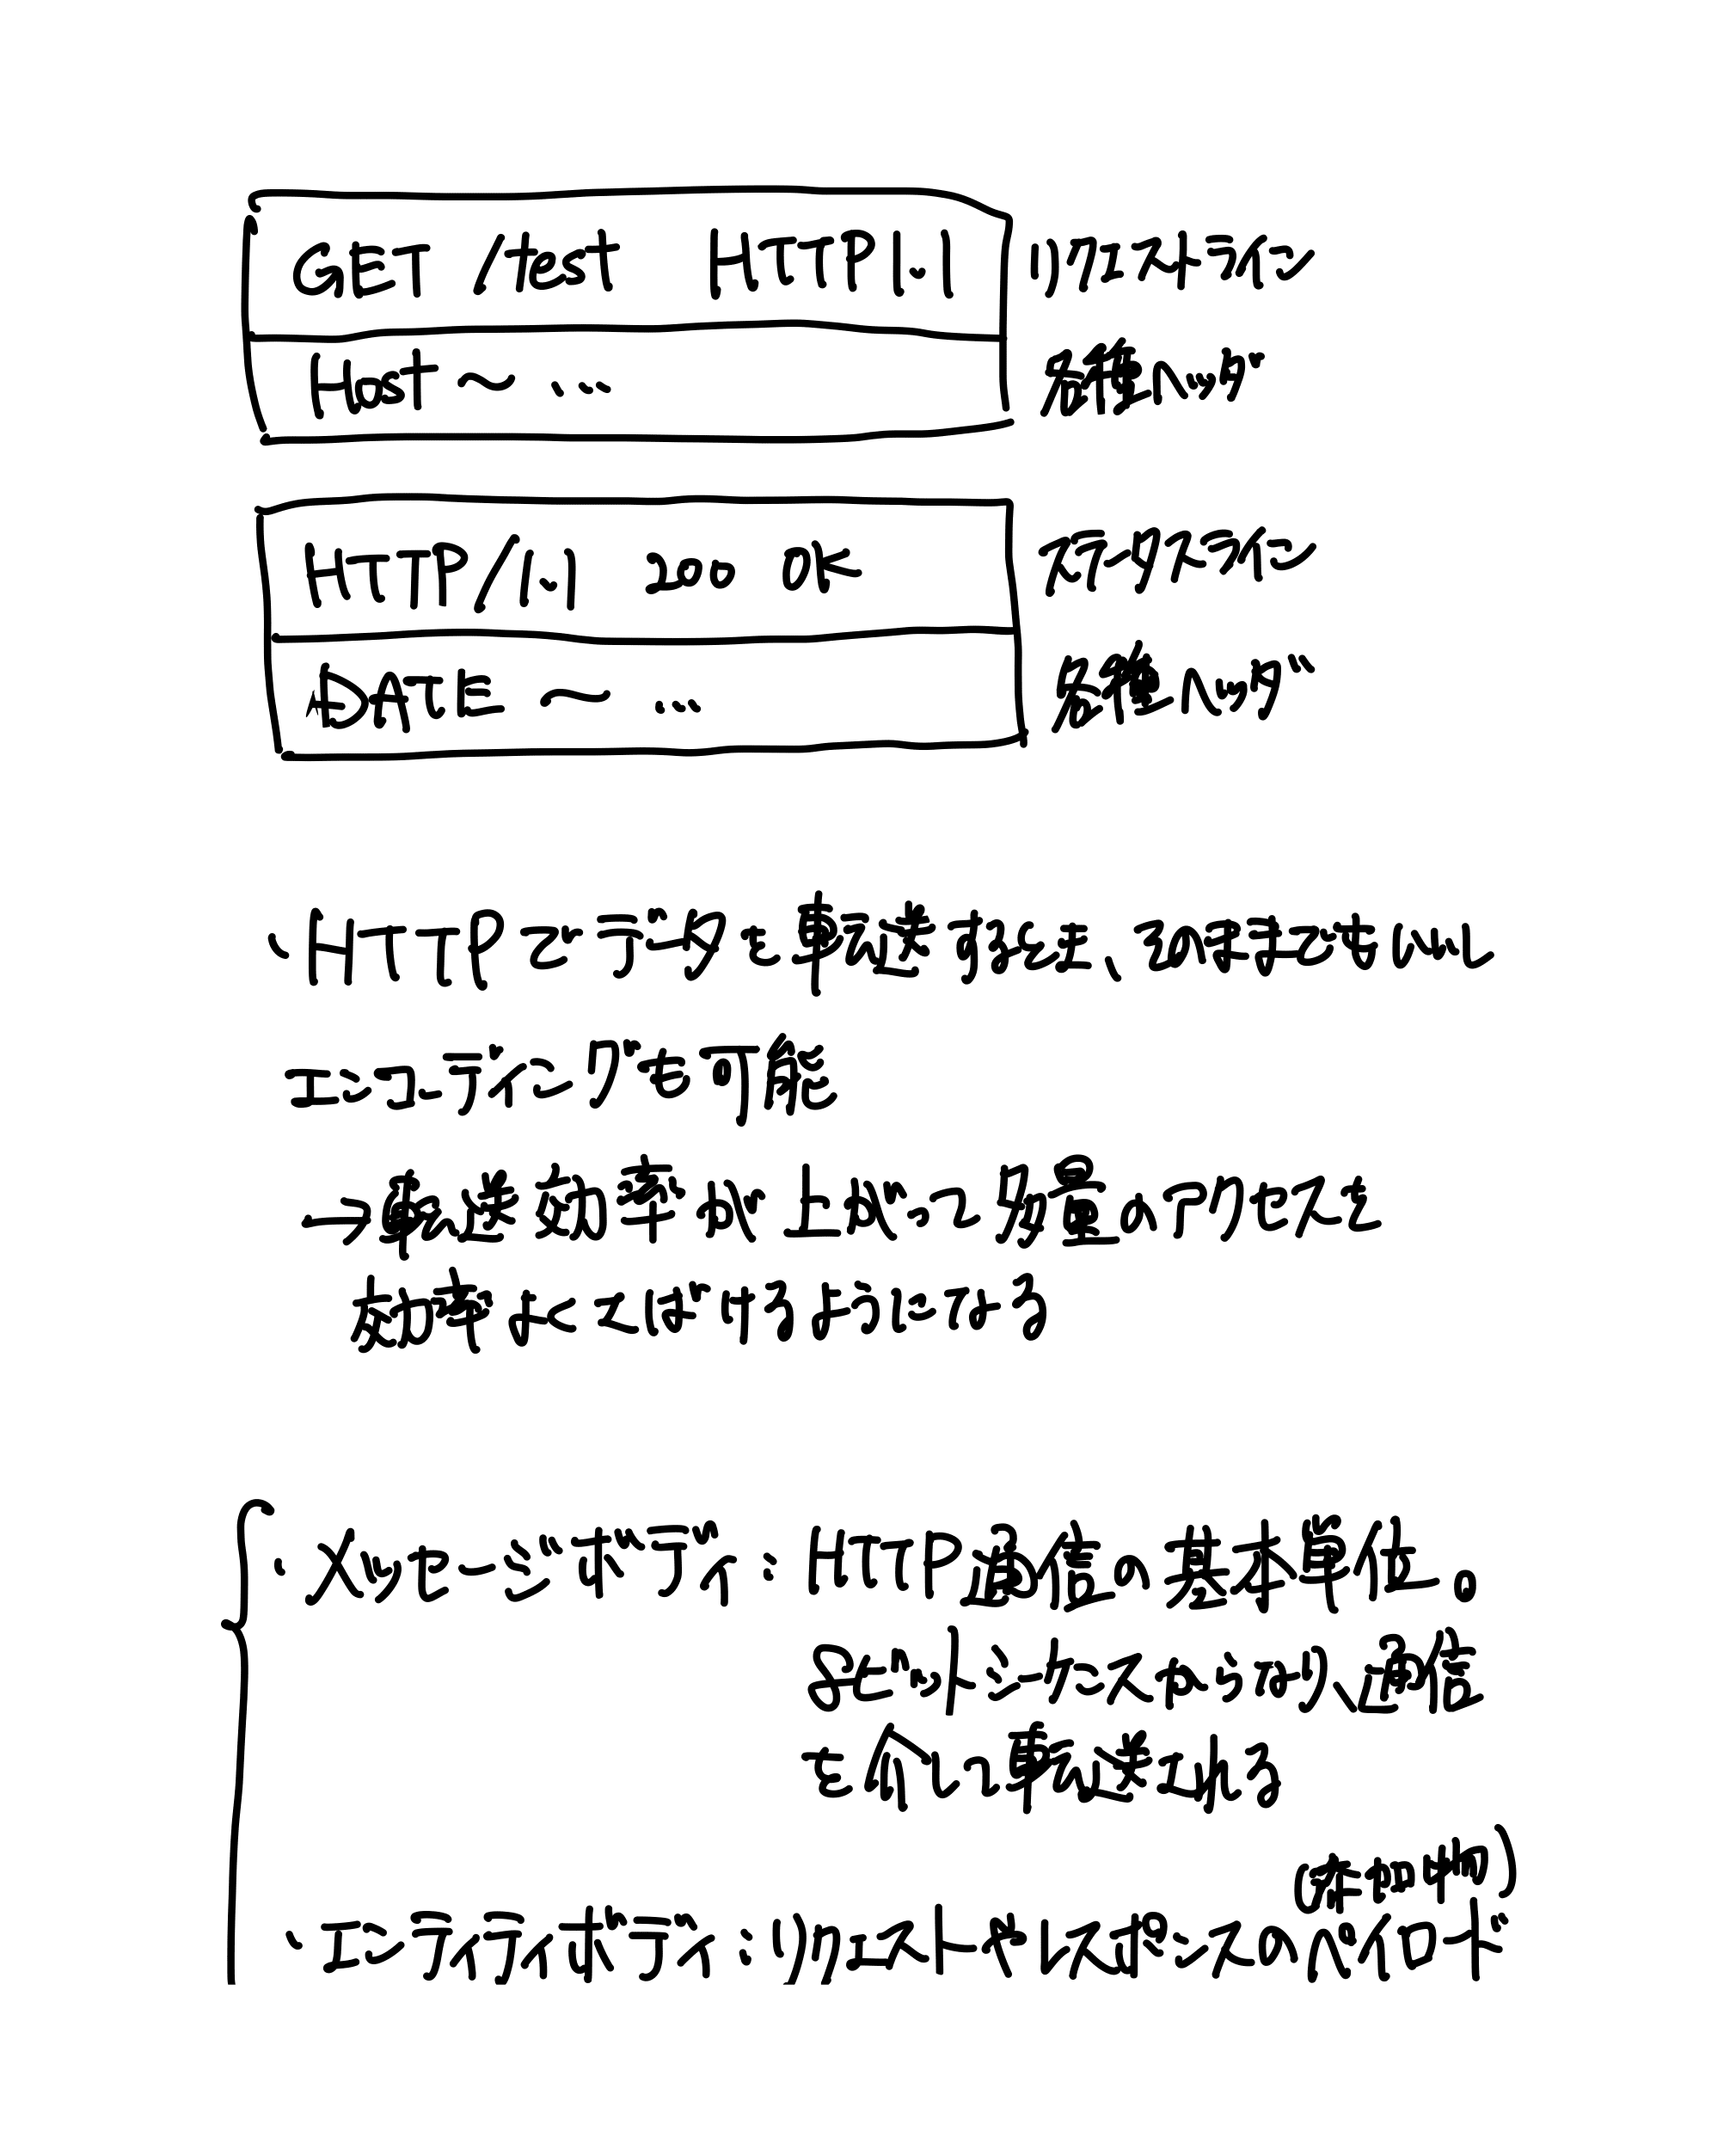 GET /test HTTP1.1 リクエストライン
Host 〜 ... 各種ヘッダ
HTTP/1.1 200 OK ステータスライン
DATE 〜 ... 各種ヘッダ
・HTTPでデータを転送するとき、そのままでもいいし
エンコーディングも可能
→転送効率が上がって多量のアクセスを
効率よくさばけるようになる
・メッセージボディ：HTTP通信の基本単位。
8ビットシーケンスからなり、通信
を介して転送される
(付加物)
・エンティティボディ：リクエストやレスポンスのペイロード